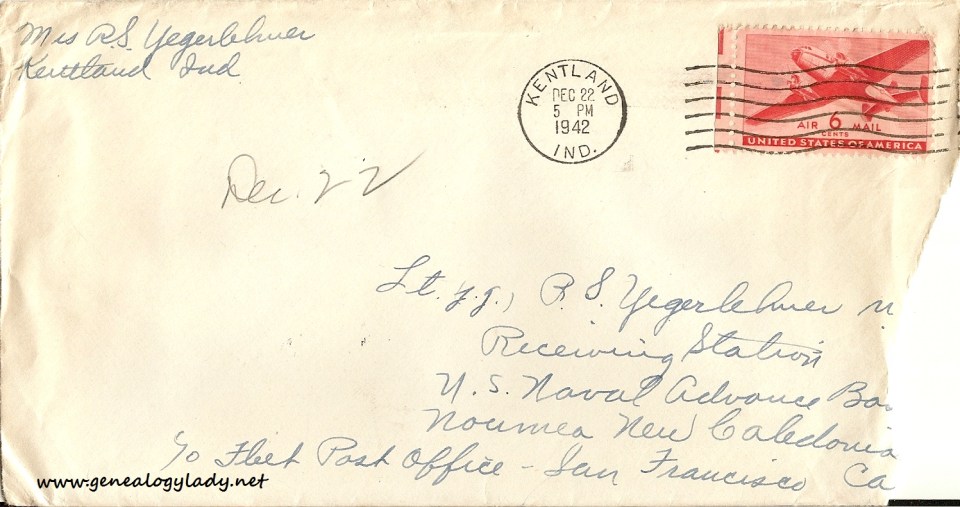 Mrs R.S. Yegerlehner
Kentland Ind
KENTLAND
DEC 22
5 PM
1942
IND.
AIR 6 MAIL
CENTS
UNITED STATES OF AMERICA
Dec. 22
Lt. j.g., R. S. Yegerlehner
Receiving Station
U. S. Naval Advance Bas
Noumea New Caledonia
c/o Fleet Post Office - San Francisco Ca
www.genealogylady.net